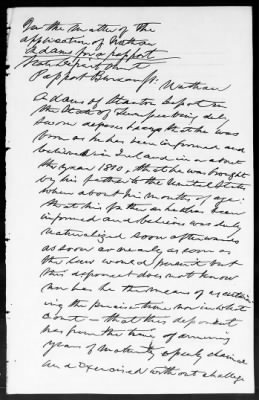 In the matter of the
application of Nathan
Adams for a passport
State Department
Passport Bureau ss: Nathan
Adams of Stanton Depot in
the State of Tennessee being duly
sworn deposes & says that he was
born as he has been informed and
believes in Ireland in or about
the year 1810, that he was brought
by his father to the United States
when about six months of age:
that his father as he has been
informed and believes was duly
naturalized soon afterwards
as soon as nearly as soon as
the laws would permit but
this deponent does not know
nor has he the means of ascertain-
ing the precise time nor in what
Court — that this deponent
has from the time of arriving
years of maturity openly claimed
and exercised without challenge